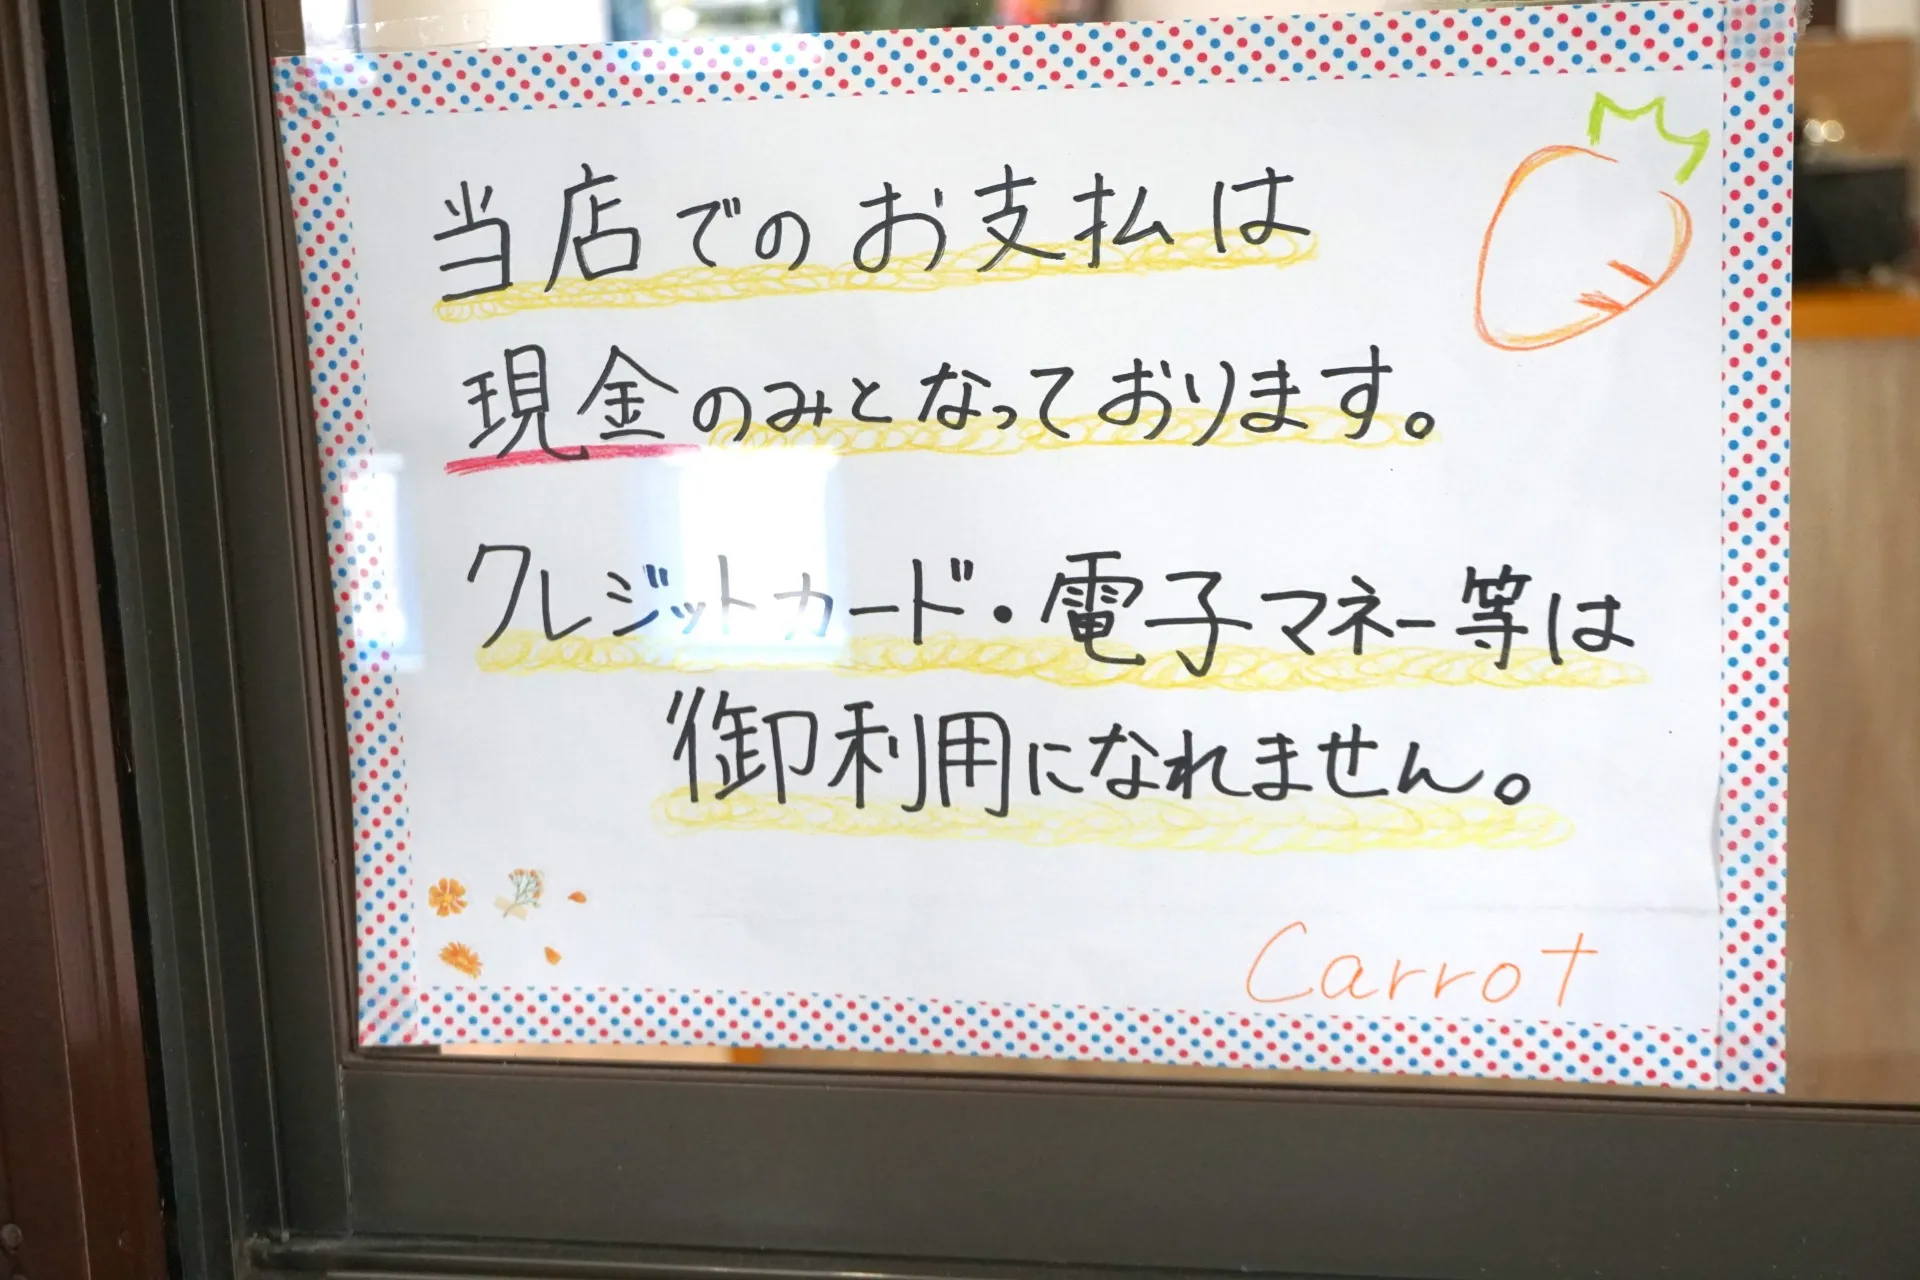 当店でのお支払は
現金のみとなっております。
クレジットカード・電子マネー等は
御利用になれません。
Carrot